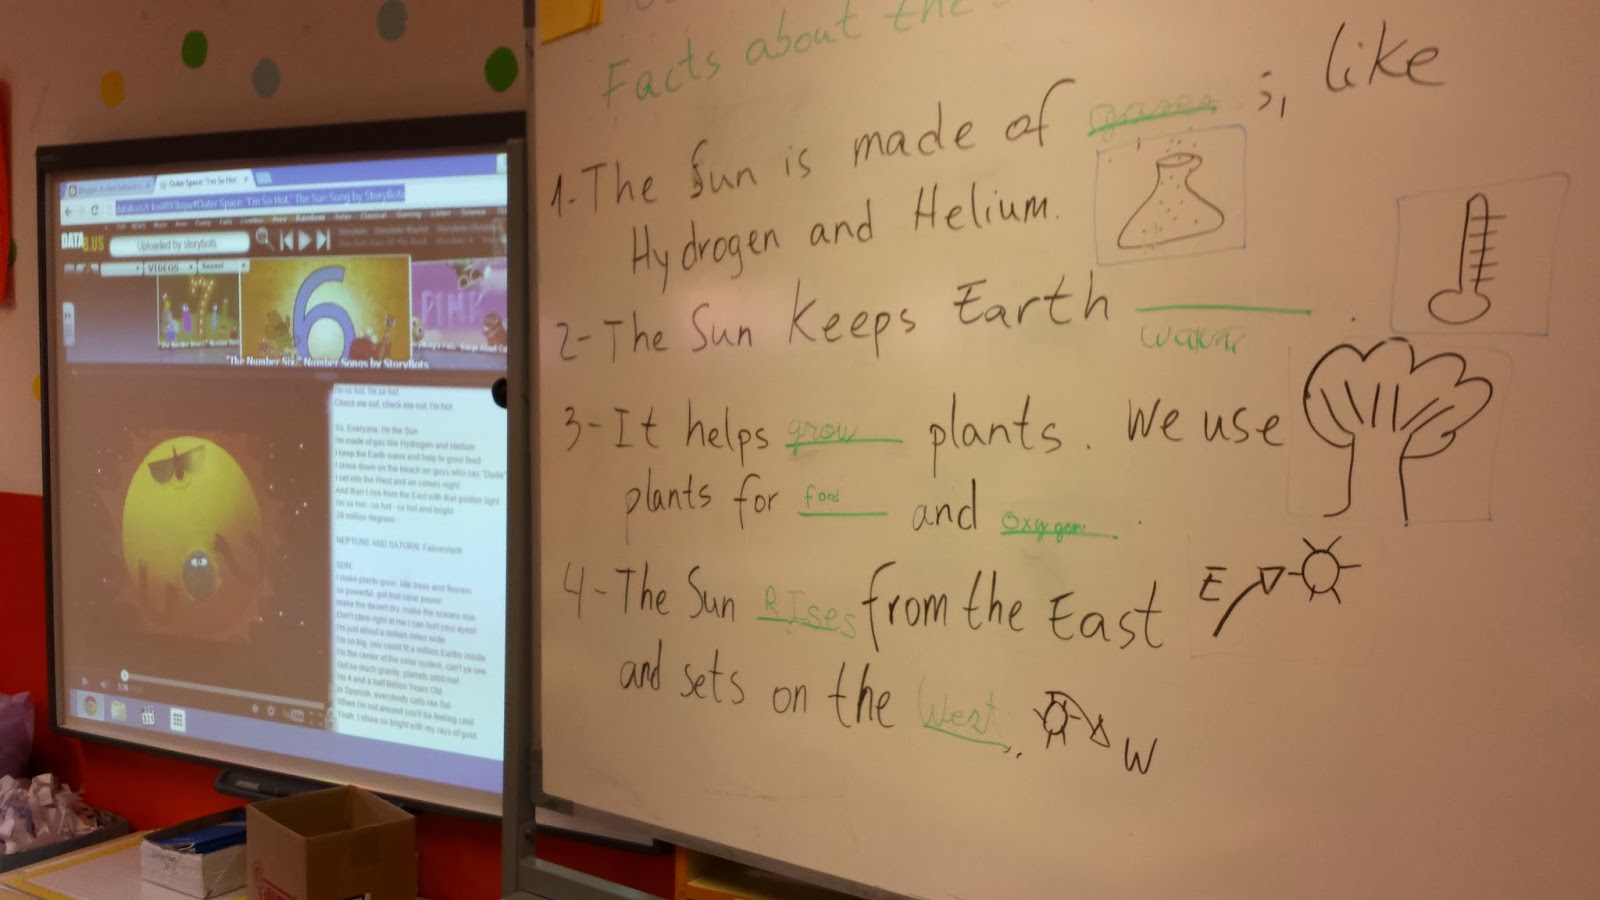 Outer Space: "I'm So Hot
Outer Space: "I'm So Hot," The Sun Song by StoryBots
DATA
Uploaded by storybots
VIDEOS
Newest
6
PINK
"The Number Six," Number Songs by StoryBots
I'm so hot, I'm so hot
Check me out, check me out, I'm hot
Yo. Everyone. I'm the Sun
I'm made of gas like Hydrogen and Helium
I keep the Earth warm and help to grow food
I shine down on the beach on guys who say "Dude"
I set into the West and on comes night
And then I rise from the East with that golden light
I'm so hot - so hot - so hot and bright
28 million degrees -
NEPTUNE AND SATURN: Fahrenheit!
SUN:
I make plants grow, like trees and flowers
so powerful, got that solar power
make the desert dry, make the oceans rise
Don't stare right at me I can hurt your eyes!
I'm just about a million miles wide
I'm so big, you could fit a million Earths inside
I'm the center of the solar system, can't ya see
Got so much gravity, planets orbit me!
I'm 4 and a half Billion Years Old
In Spanish, everybody calls me Sol
When I'm not around you'll be feeling cold
Yeah, I shine so bright with my rays of gold
Facts about the
1.-The Sun is made of gases ;, like
Hydrogen and Helium.
2-The Sun Keeps Earth ______ .
3-It helps grow plants. We use
plants for food and oxygen .
4-The Sun RIses from the East
E
and sets on the West.
W